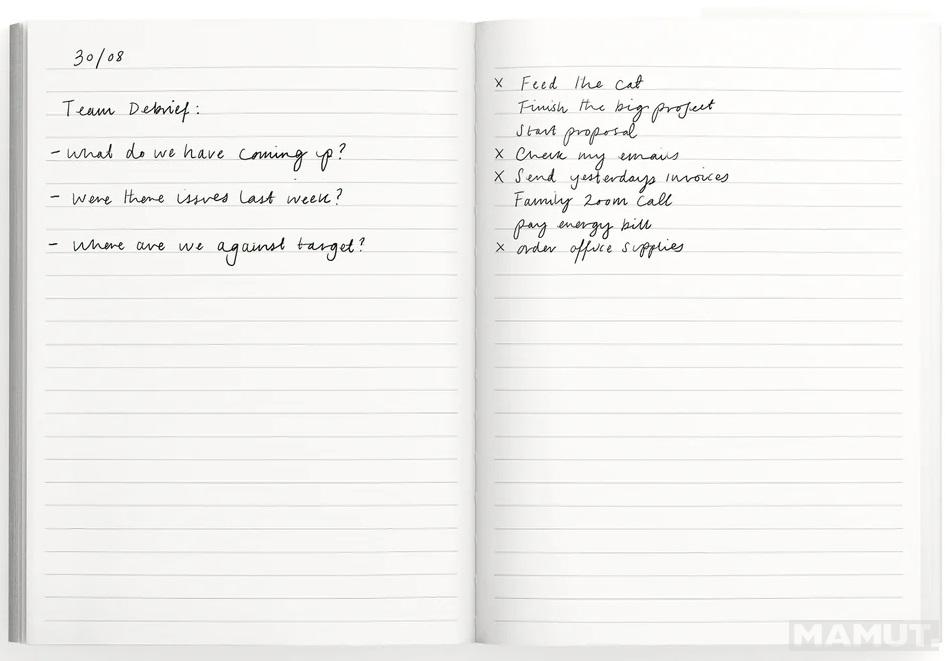 30/08
Team Debrief:
- what do we have coming up?
- Were there issues last week?
- where are we against target?
x Feed the cat
Finish the big project
Start proposal
x Check my emails
x Send yesterdays invoices
Family Zoom Call
pay energy bill
x order office supplies
MAMUT.